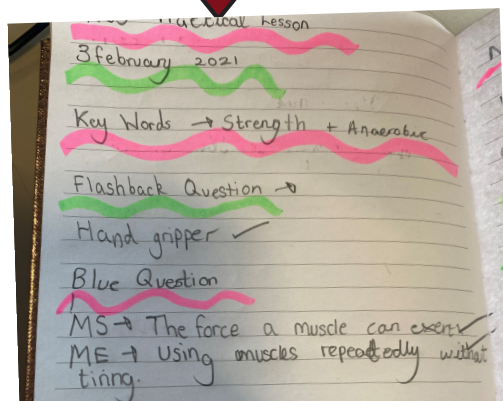 Practical Lesson
3 february 2021
Key Words → Strength + Anaerobic
Flashback Question →
Hand gripper ✓
Blue Question
MS → The force a muscle can exert ✓
ME → Using muscles repeatedly without
tiring.